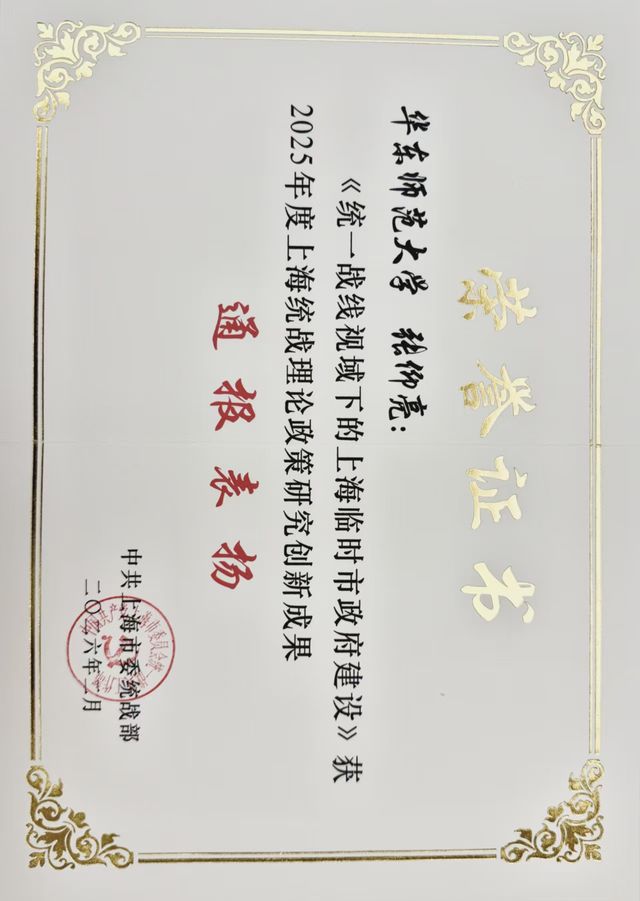 荣誉证书
华东师范大学 张仰亮：
《统一战线视域下的上海临时市政府建设》获
2025年度上海统战理论政策研究创新成果
通报表扬
中共上海市委统战部
二〇二六年一月